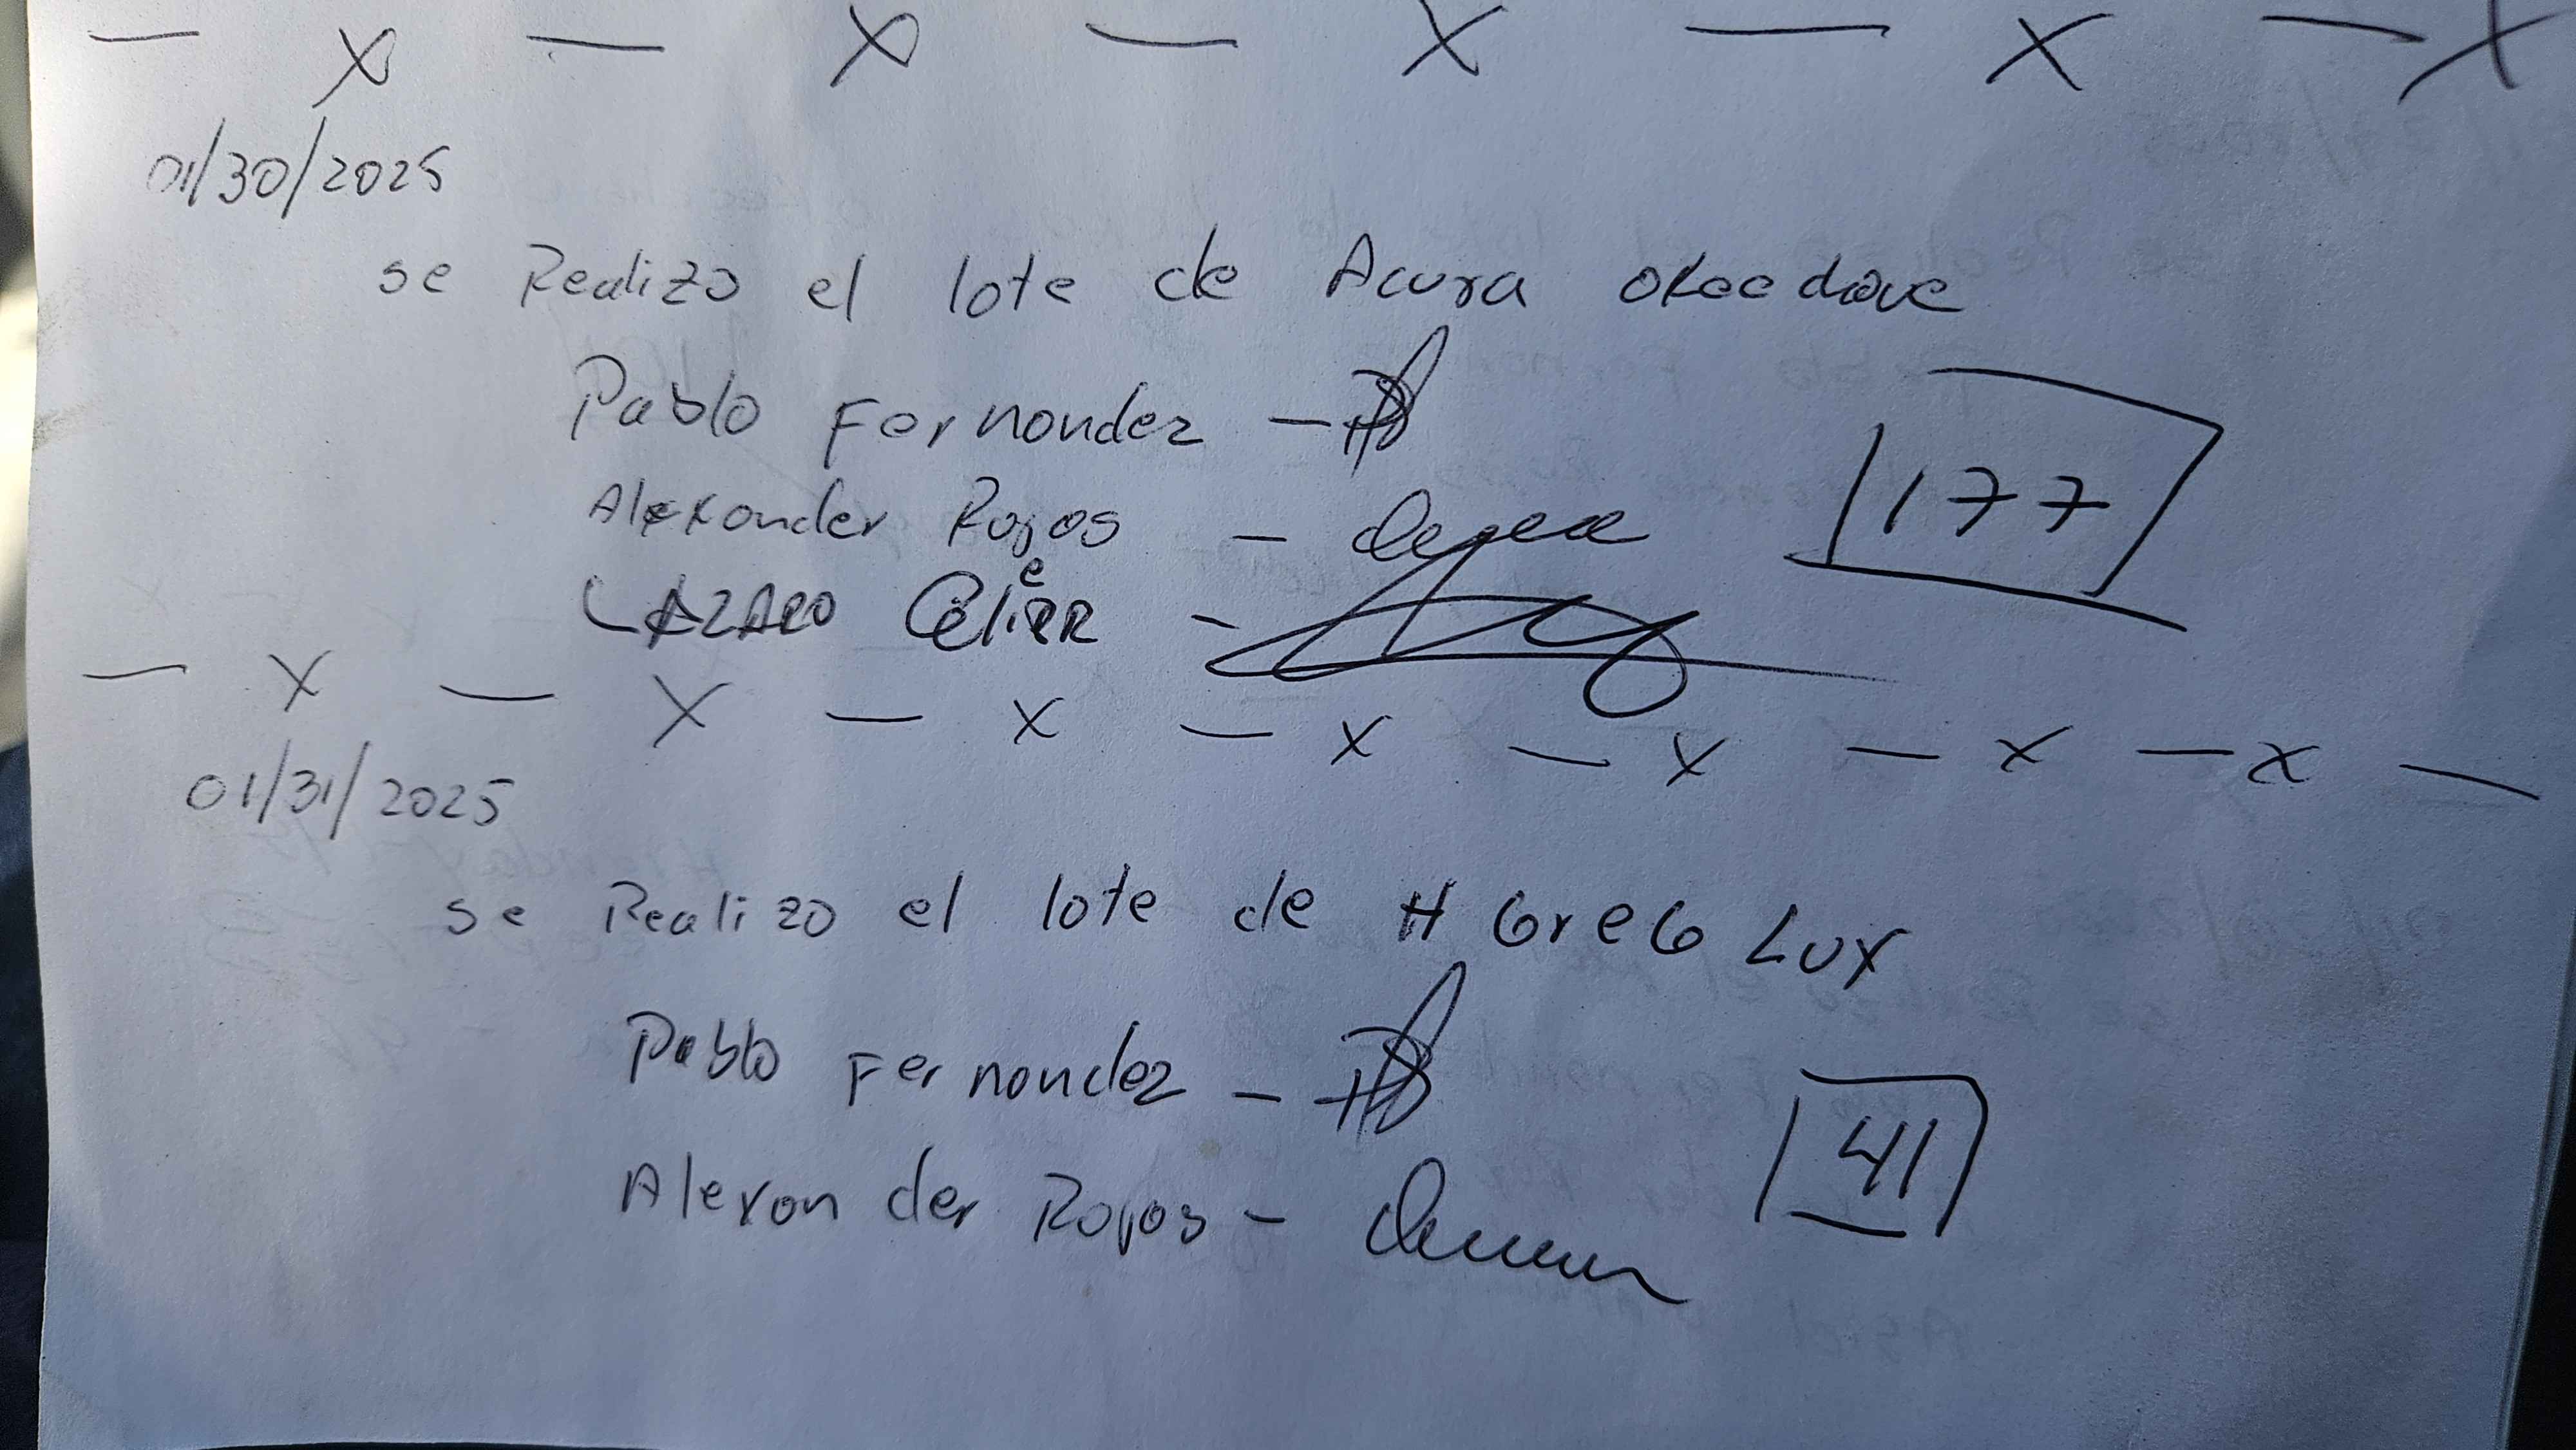 — X — X — X — X — X
01/30/2025
se Realizo el lote de Acura okeechove
Pablo Fernandez —
Alexander Rojas —
177
LAZARO —
— X — X — X — X — X — X — X —
01/31/2025
se Realizo el lote de H GreG Lux
Pablo Fernandez —
Alexander Rojas —
41